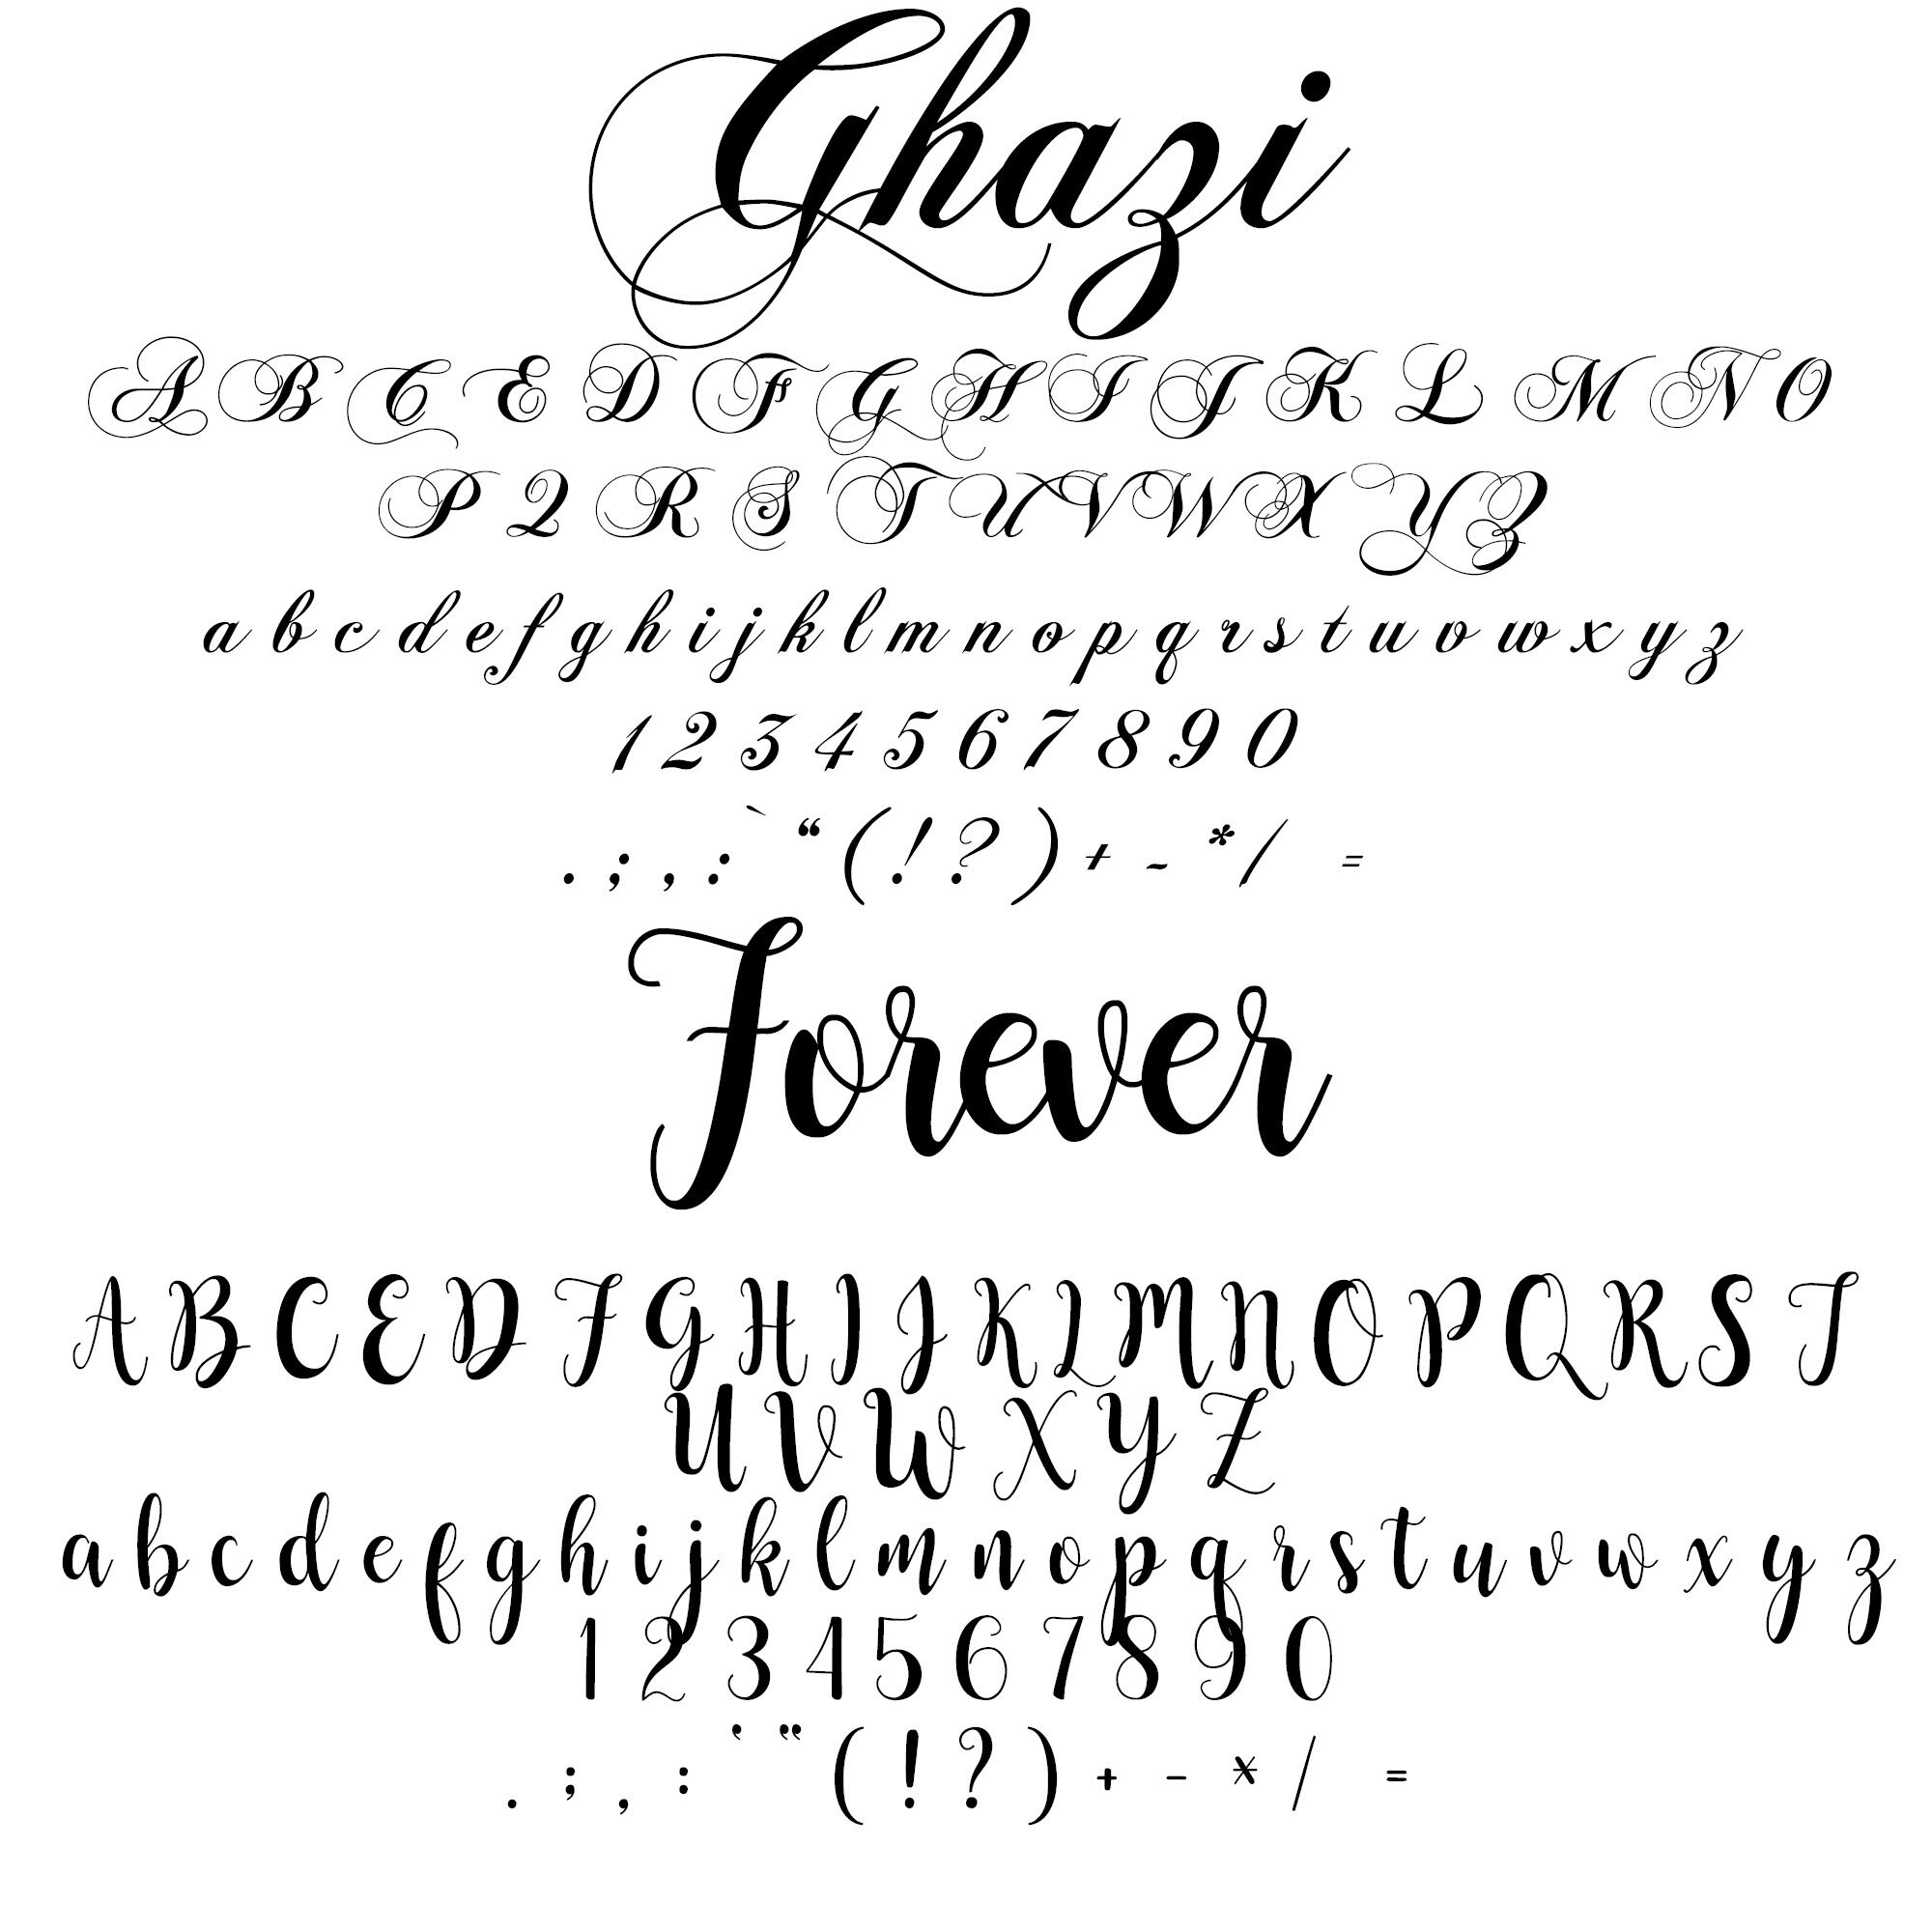 Ghazi
A B C E D F G H I J K L M N O
P Q R S T U V W X Y Z
a b c d e f g h i j k l m n o p q r s t u v w x y z
1 2 3 4 5 6 7 8 9 0
. ; , : ` “ ( ! ? ) + - * / =
Forever
A B C E D F G H I J K L M N O P Q R S T
U V W X Y Z
a b c d e f g h i j k l m n o p q r s t u v w x y z
1 2 3 4 5 6 7 8 9 0
. ; , : ' " ( ! ? ) + - * / =